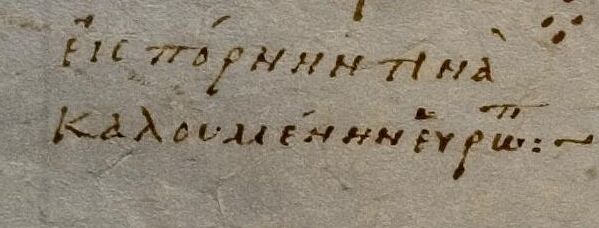 ἐις πόρνην τινὰ
καλουμένην ἐυρωπ :~